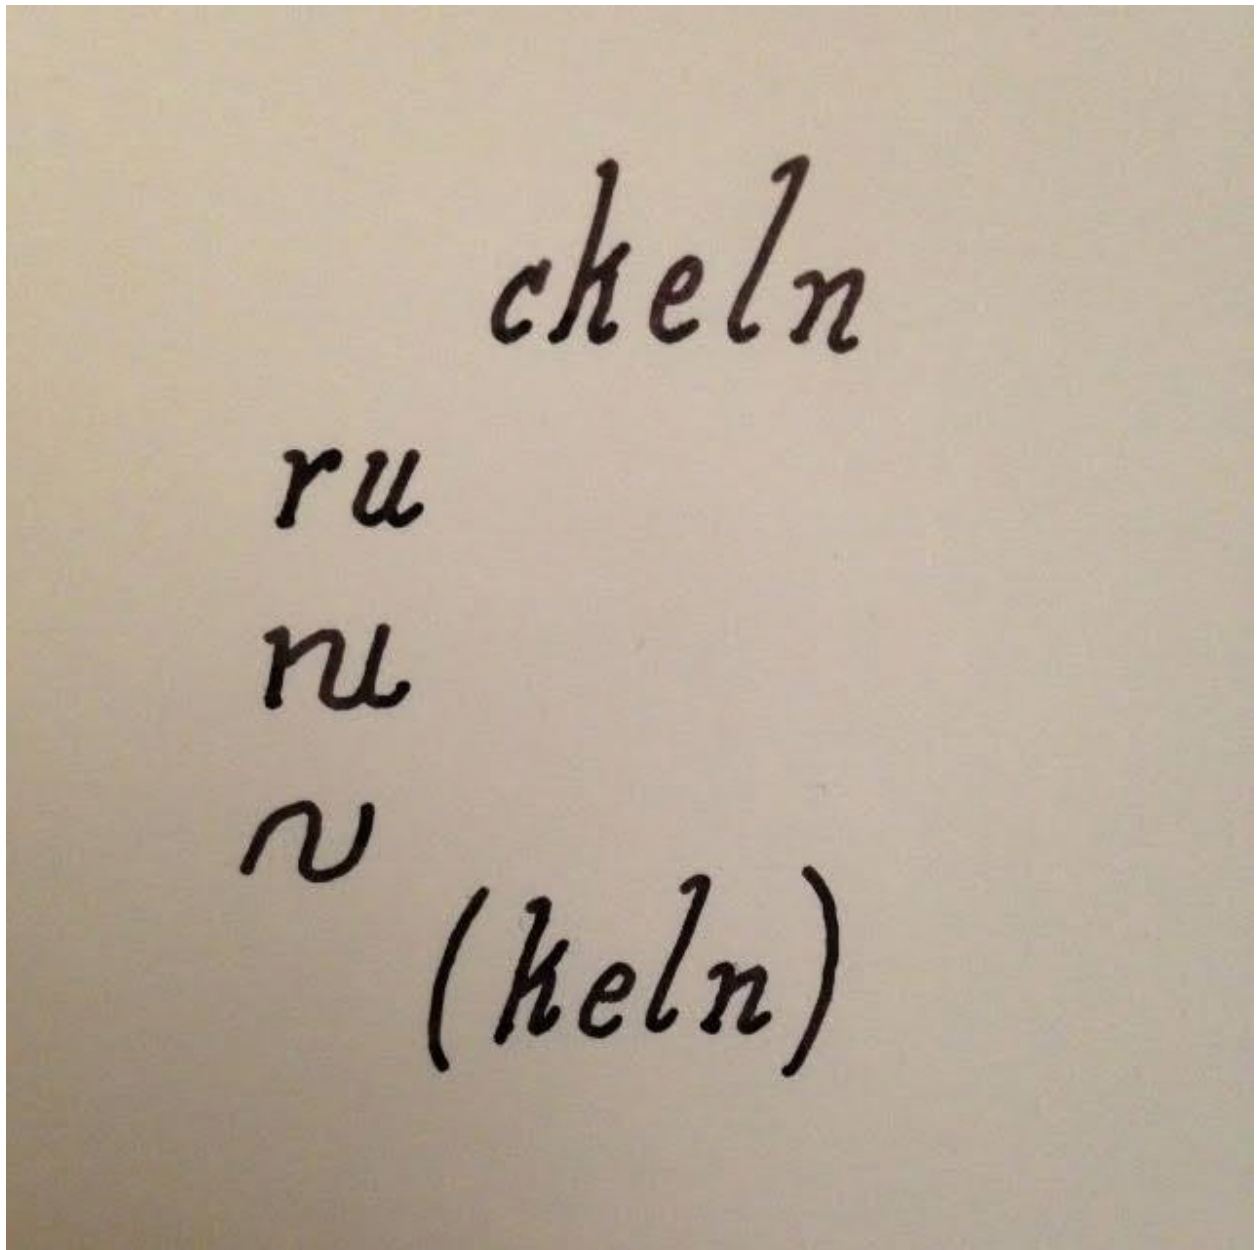 ckeln
ru
ru
~
(keln)